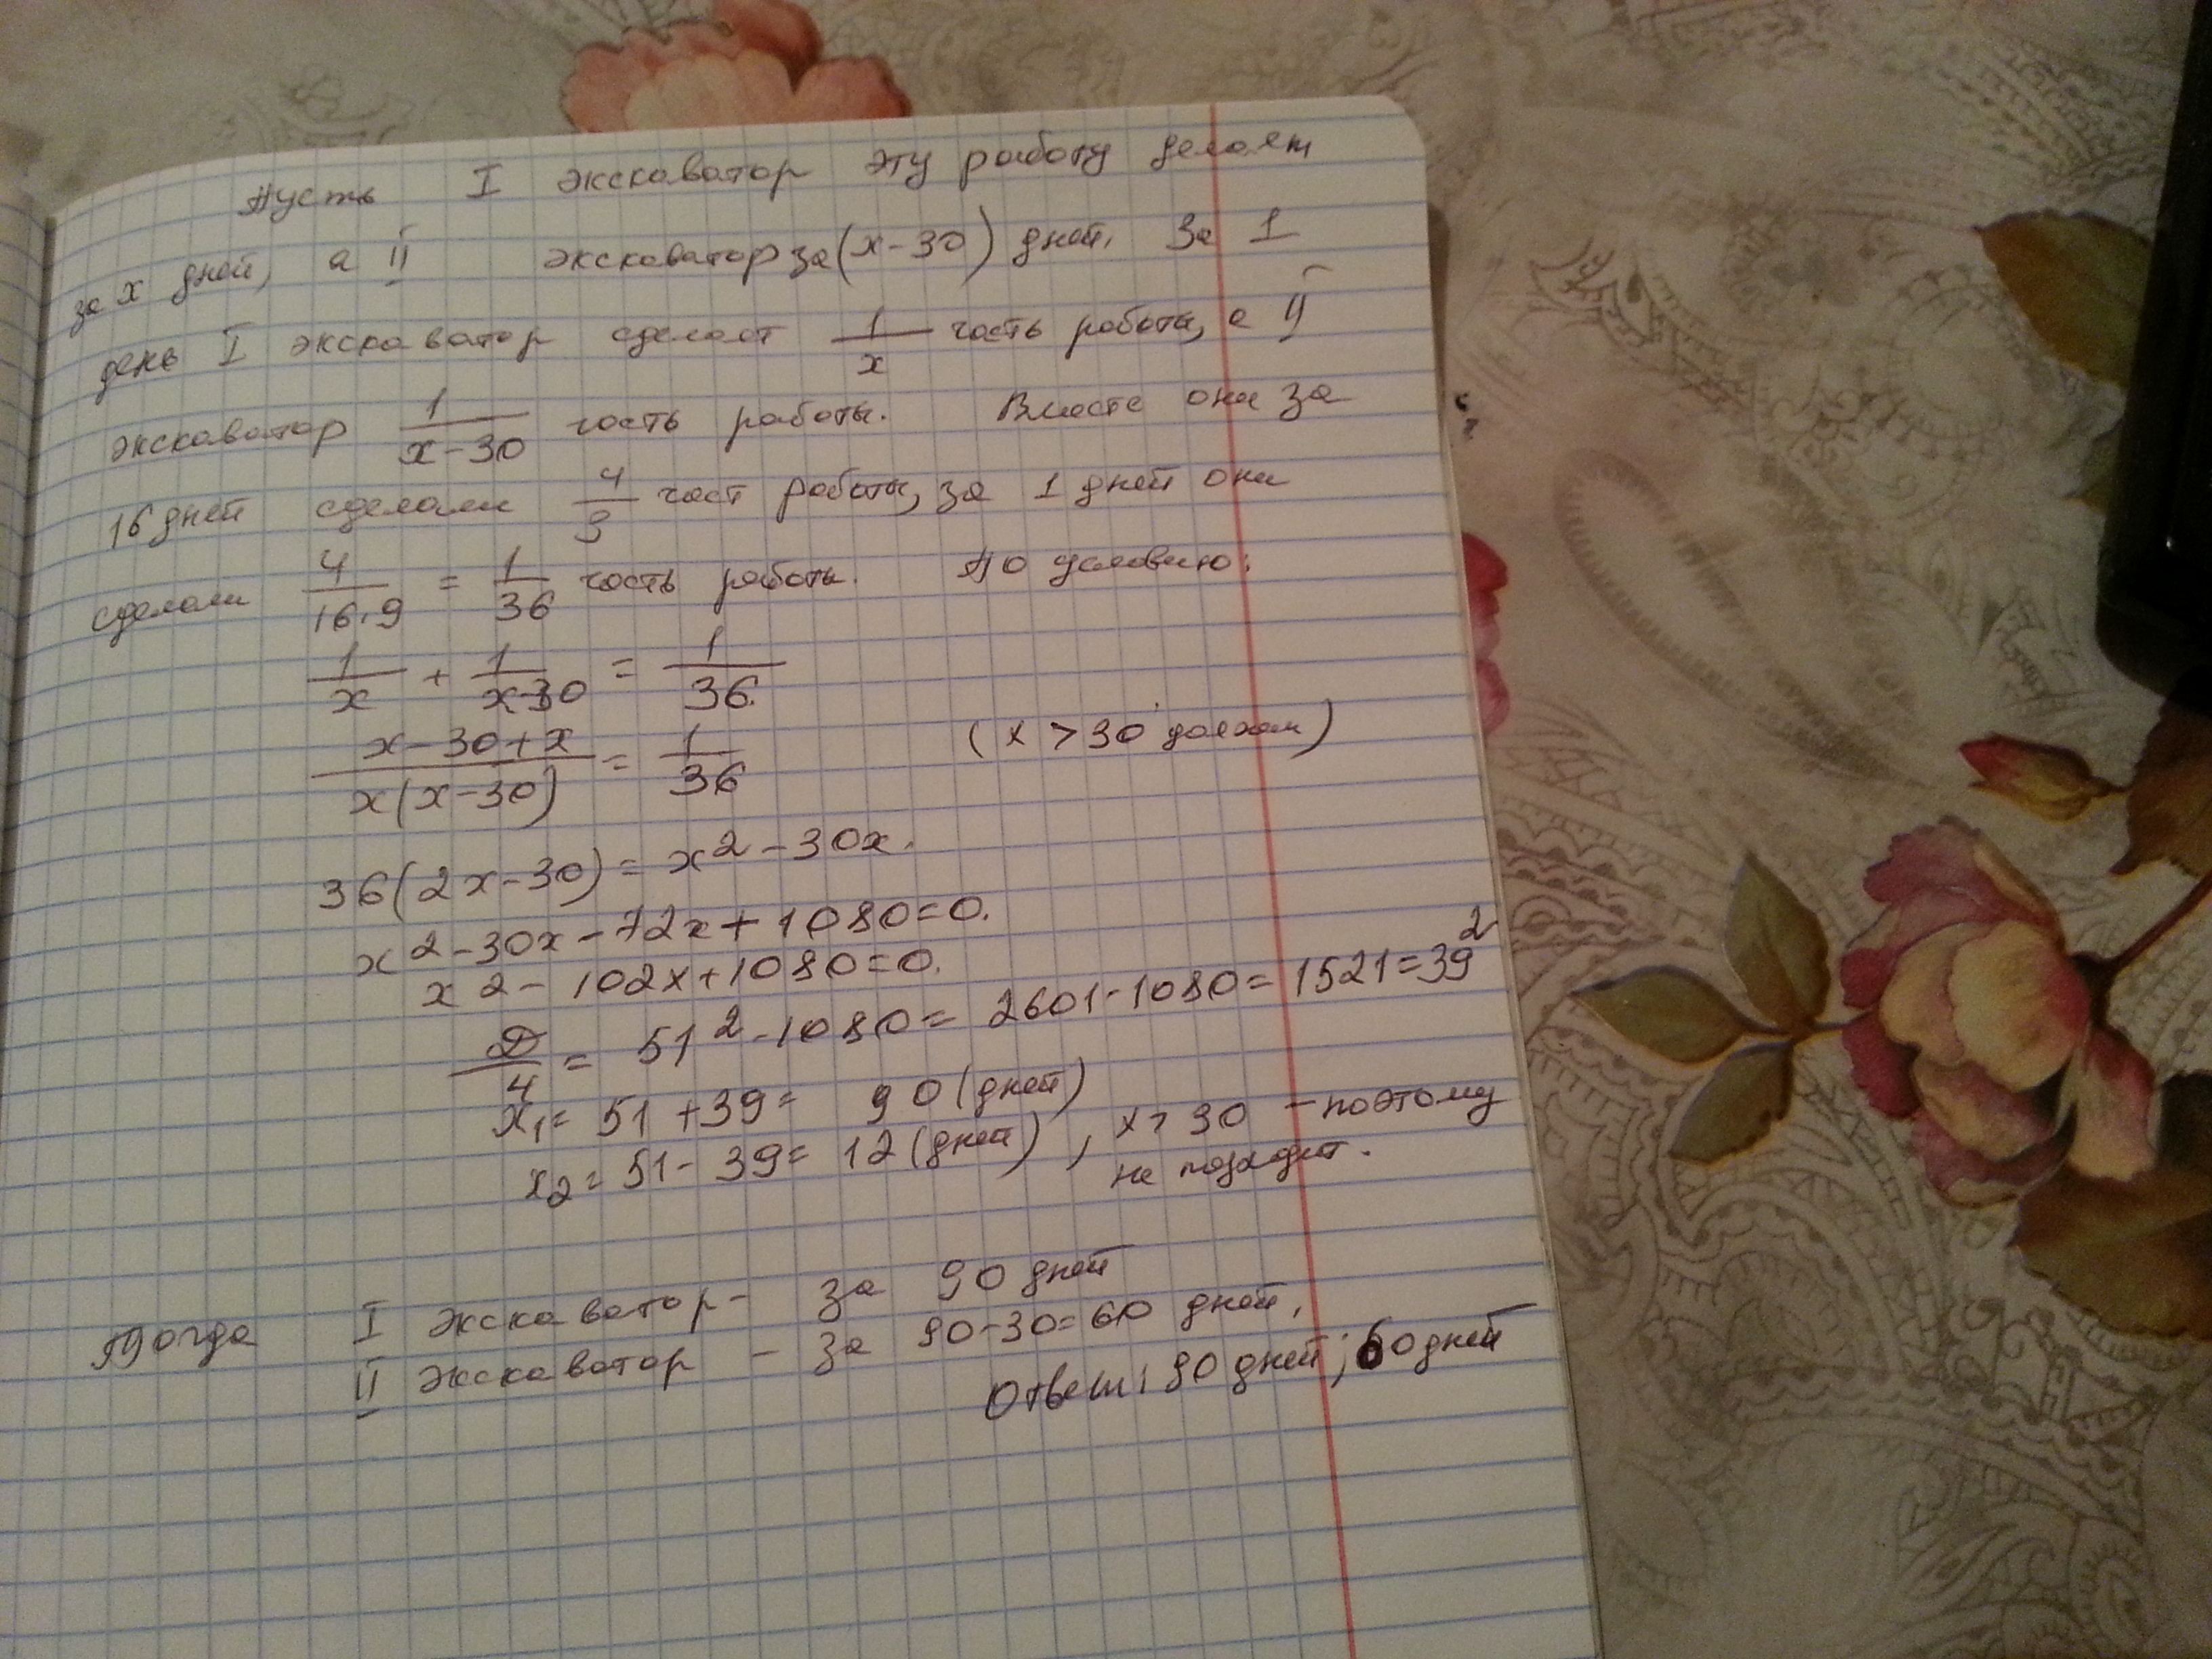 Пусть I экскаватор эту работу делает
за x дней, а II экскаватор за (x-30) дней. За 1
день I экскаватор сделает 1/x часть работы, а II
экскаватор 1/(x-30) часть работы. Вместе они за
16 дней сделали 4/9 част работы, за 1 дней они
сделали 4/(16·9) = 1/36 часть работы. По условию:
1/x + 1/(x-30) = 1/36.
(x-30+x)/(x(x-30)) = 1/36 (x > 30 должен)
36(2x-30) = x²-30x.
x²-30x-72x+1080=0.
x²-102x+1080=0.
D/4 = 51²-1080= 2601-1080= 1521=39²
x₁= 51+39= 90 (дней)
x₂= 51-39= 12 (дней), x > 30 - поэтому
не подходит.
Тогда I экскаватор - за 90 дней
II экскаватор - за 90-30=60 дней,
Ответ: 90 дней; 60 дней